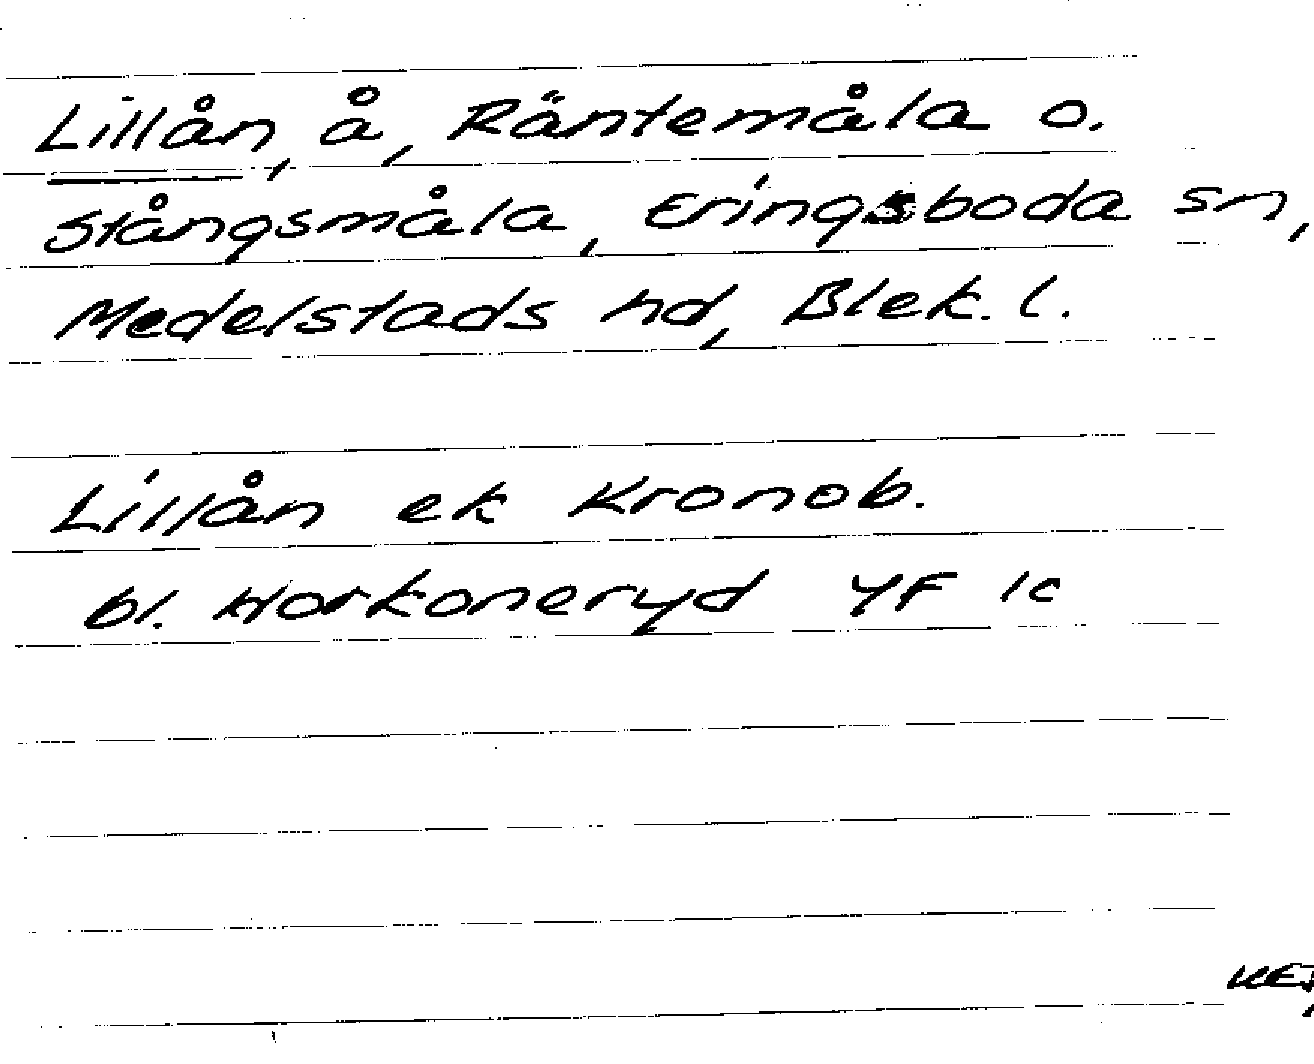 Lillån, å, Räntemåla o.
Stångsmåla, Eringsboda sn,
Medelstads hd, Blek. l.
Lillån ek Kronob.
bl. Horkoneryd YF 1c